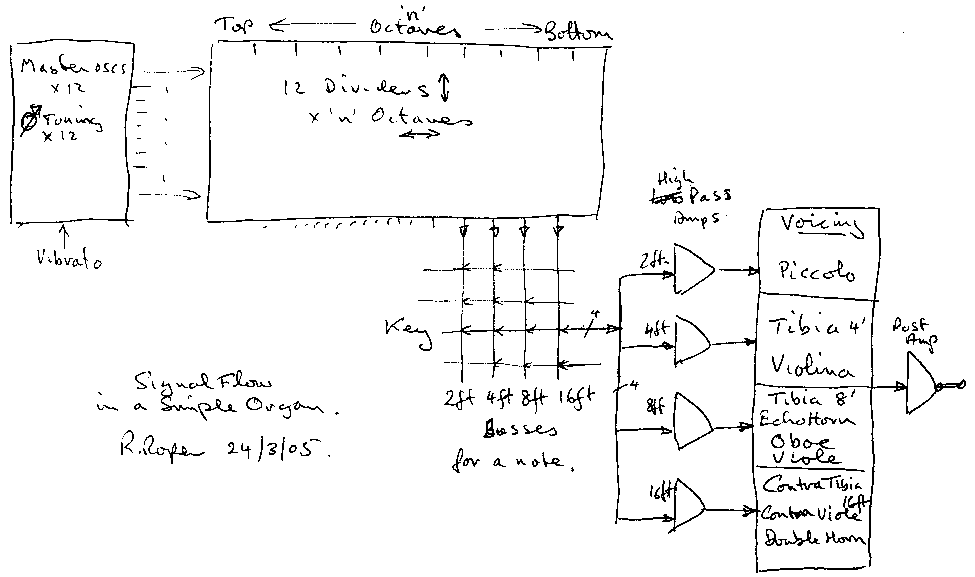 'n'
Top ← Octaves → Bottom
Master oscs
x 12
Tuning
x 12
Vibrato
12 Dividers
x 'n' Octaves
Key
4
2ft 4ft 8ft 16ft
Busses
for a note.
Signal Flow
in a Simple Organ.
R. Roper 24/3/05.
High
Pass
Amps.
2ft
4ft
4
8ft
16ft
Voicing
Piccolo
Tibia 4'
Violina
Tibia 8'
Echo Horn
Oboe
Viole
Contra Tibia
Contra Viole 16ft
Double Horn
Post
Amp